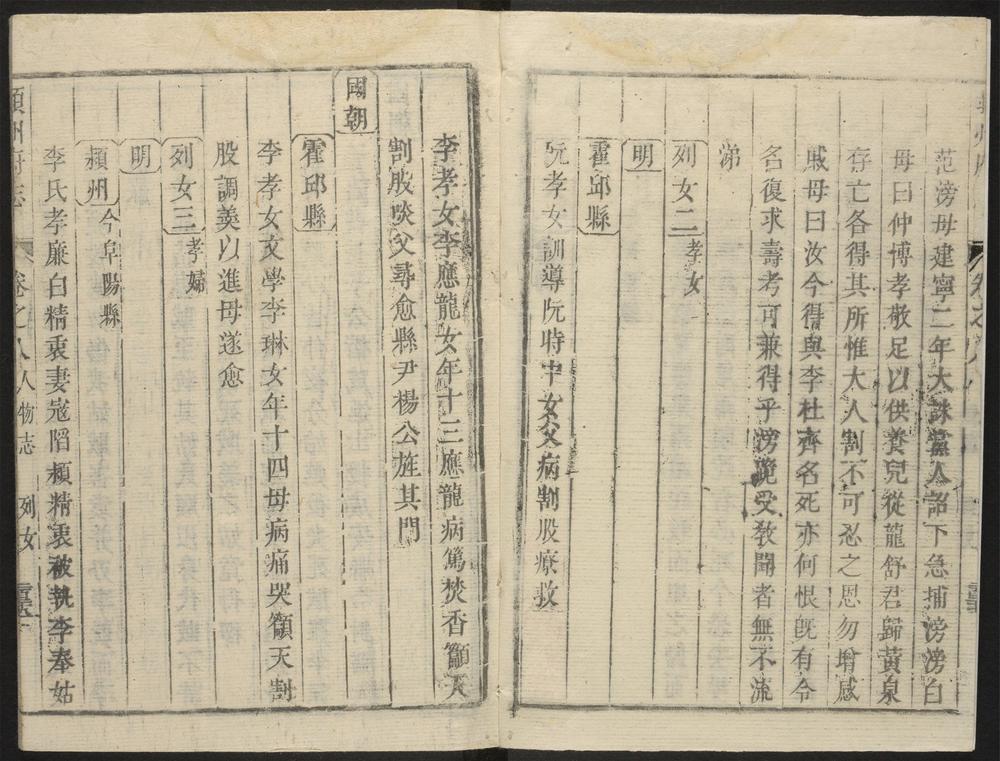 范滂母建寧二年大誅黨人詔下急捕滂滂白
母曰仲博孝敬足以供養兒從龍舒君歸黃泉
存亡各得其所惟大人割不可忍之恩勿增感
戚母曰汝今得與李杜齊名死亦何恨旣有令
名復求壽考可兼得乎滂跪受教聞者無不流
涕
列女二孝女
明
霍邱縣
阮孝女訓導阮時中女父病割股療救
李孝女李應龍女年十三應龍病篤焚香籲天
割股啖父尋愈縣尹楊公旌其門
國朝
霍邱縣
李孝女文學李琳女年十四母病痛哭籲天割
股調羹以進母遂愈
列女三孝婦
明
潁州今阜陽縣
李氏孝廉白精衷妻寇陷潁精衷被執李奉姑
潁州府志 卷之八人物志 列女